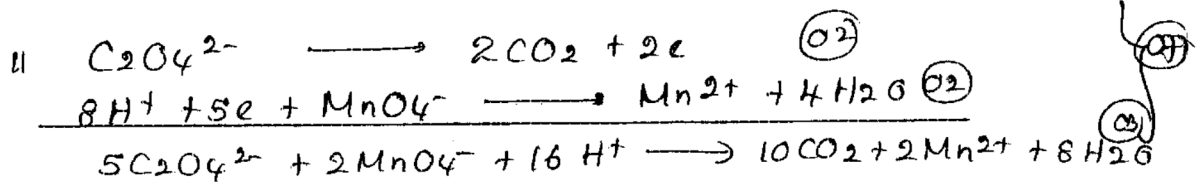 11 C2O4 2- → 2CO2 + 2e 02
8H+ + 5e + MnO4- → Mn2+ + 4H2O 02
5C2O4 2- + 2MnO4- + 16H+ → 10CO2 + 2Mn2+ + 8H2O 03